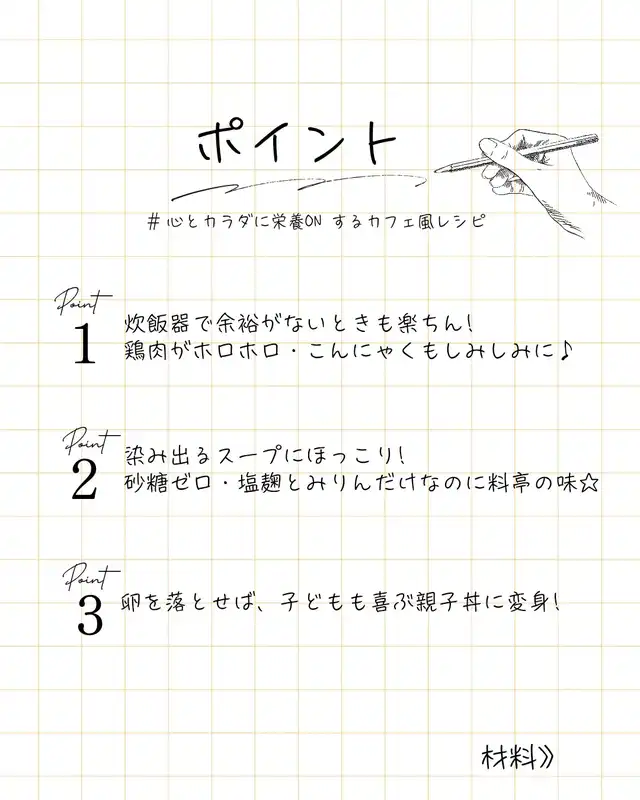 ポイント
#心とカラダに栄養ON するカフェ風レシピ
Point
1
炊飯器で余裕がないときも楽ちん!
鶏肉がホロホロ・こんにゃくもしみしみに♪
Point
2
染み出るスープにほっこり!
砂糖ゼロ・塩麹とみりんだけなのに料亭の味☆
Point
3
卵を落とせば、子どもも喜ぶ親子丼に変身!
材料》